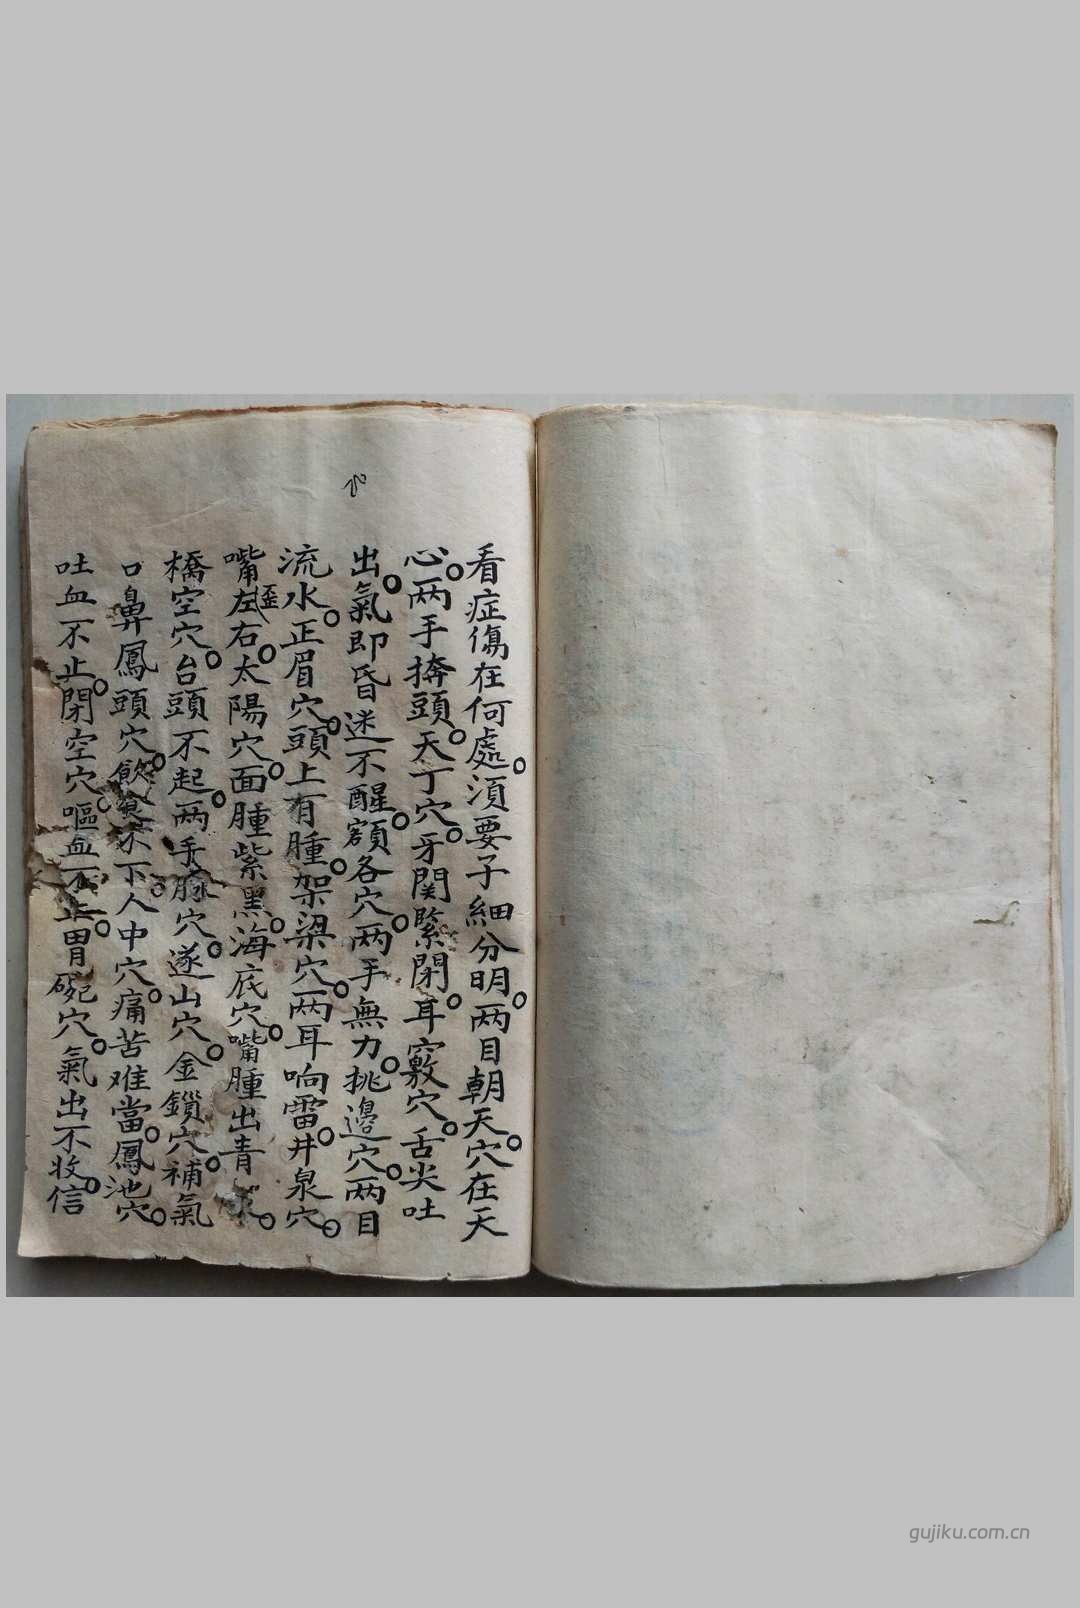 看症傷在何處。須要子細分明。两目朝天。穴在天
心。两手捹頭。天丁穴。牙関緊閉。耳竅穴。舌尖吐
出。氣即昏迷不醒。額各穴。两手無力。挑邊穴。两目
流水。正眉穴。頭上有腫。架梁穴。两耳响雷。井泉穴。
嘴歪左右。太陽穴。面腫紫黑。海底穴。嘴腫出青。
橋空穴。台頭不起。两手 穴。遂山穴。金鎖穴。補氣
口鼻鳳頭穴。飲食不下。人中穴。痛苦难當。鳳池穴。
吐血不止。閉空穴。嘔血不止。胃 穴。氣出不收。信
gujiku.com.cn